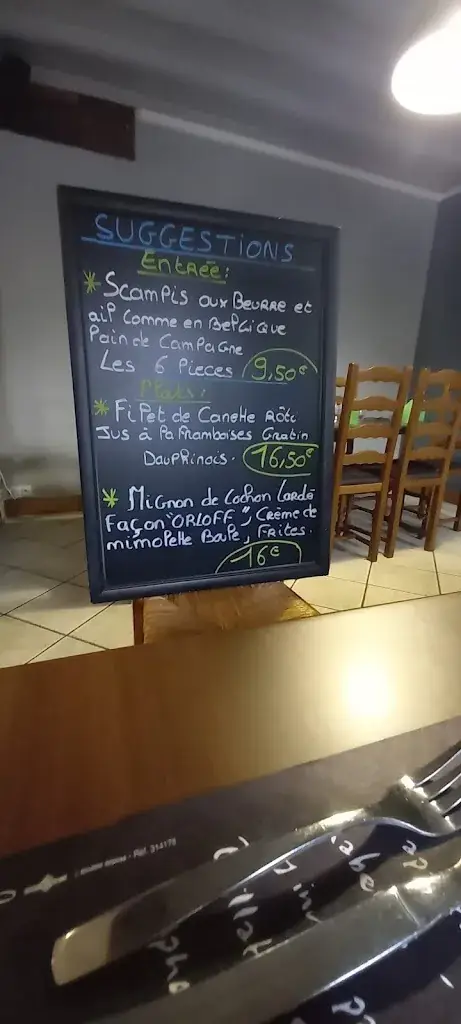 SUGGESTIONS
Entrée:
* Scampis aux Beurre et
ail Comme en Belgique
Pain de Campagne
Les 6 Pieces 9,50€
Plats:
* Filet de Canette Rôti
Jus à la Framboises Gratin
Dauphinois. 16,50€
* Mignon de Cochon Lardé
Façon "ORLOFF", Crème de
mimolette Bale, Frites.
16€
Réf. 314178